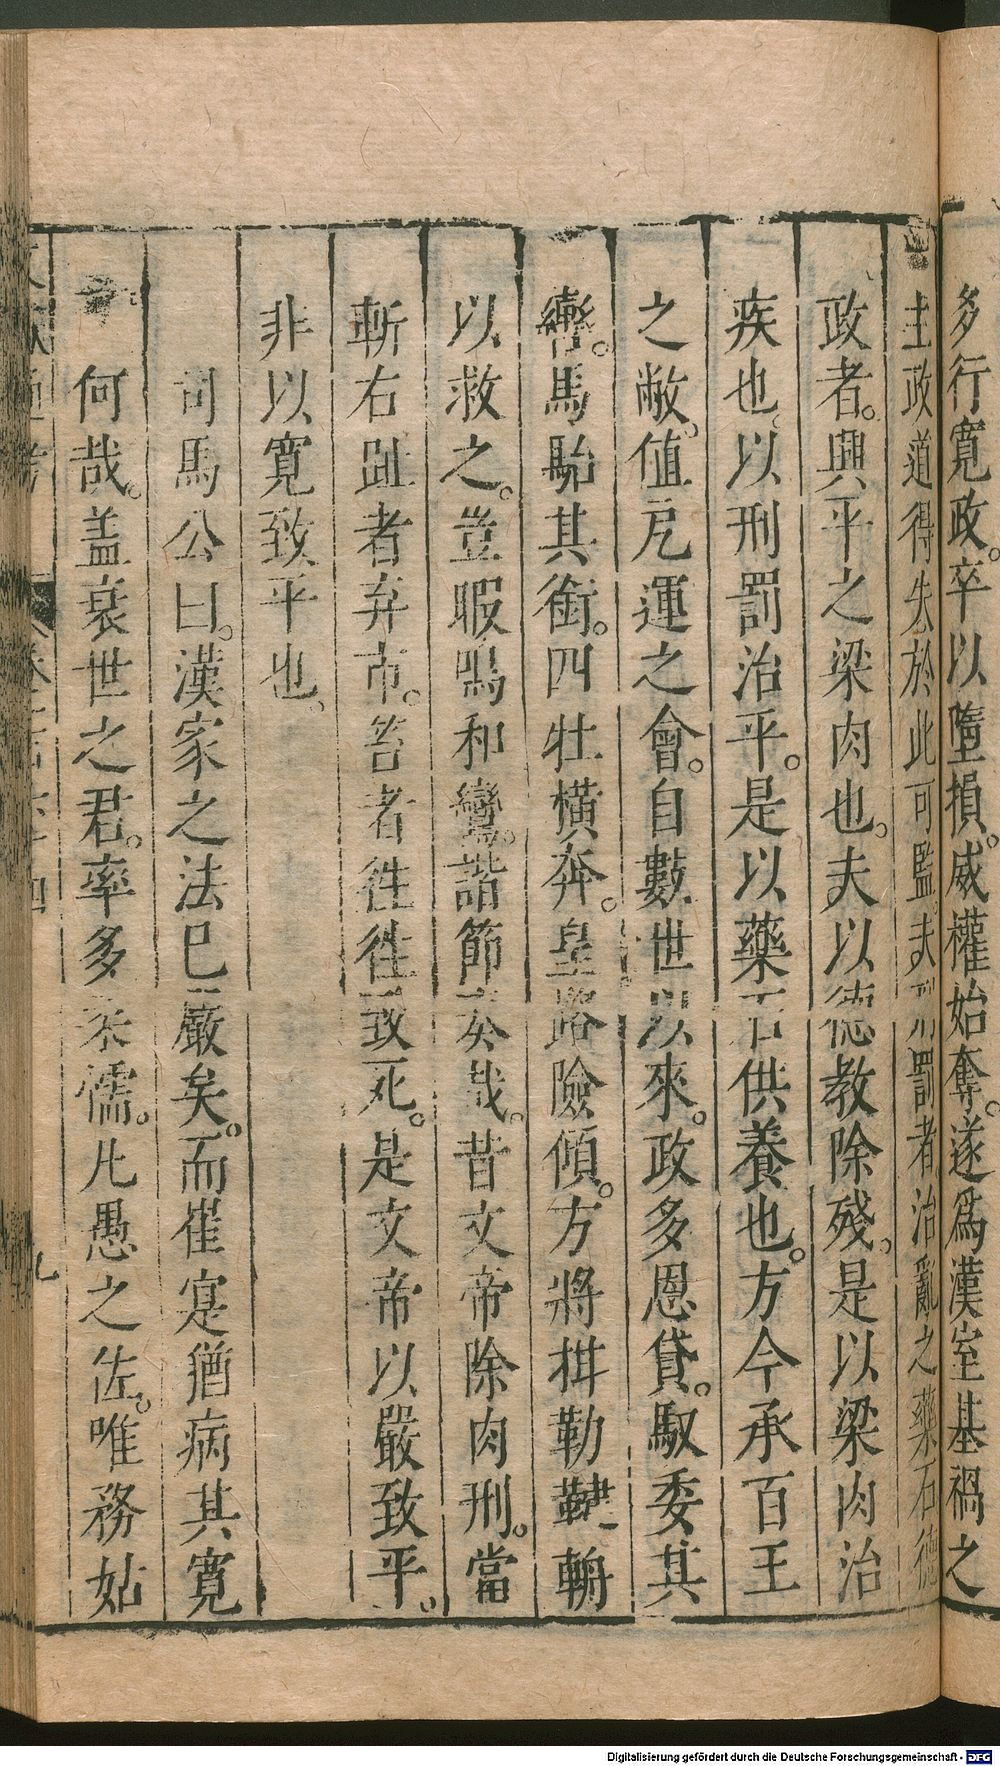 多行寬政。卒以墮損。威權始奪。遂爲漢室基禍之
主政道得失於此可監。夫刑罰者治亂之藥石德
政者。興平之梁肉也。夫以德教除殘。是以梁肉治
疾也、以刑罰治平。是以藥石供養也。方今承百王
之敝。值戹運之會。自數世以來。政多恩貸。馭委其
轡。馬駘其銜。四牡橫奔。皇路險傾。方將拑勒鞬輈
以救之。豈暇鳴和鸞。諧節奏哉。昔文帝除肉刑。當
斬右趾者弃市。笞者徃徃致死。是文帝以嚴致平。
非以寬致平也。
司馬公曰。漢家之法已嚴矣。而崔寔猶病其寬
何哉。盖衰世之君。率多柔懦。凡愚之佐。唯務姑
九
Digitalisierung gefördert durch die Deutsche Forschungsgemeinschaft - DFG